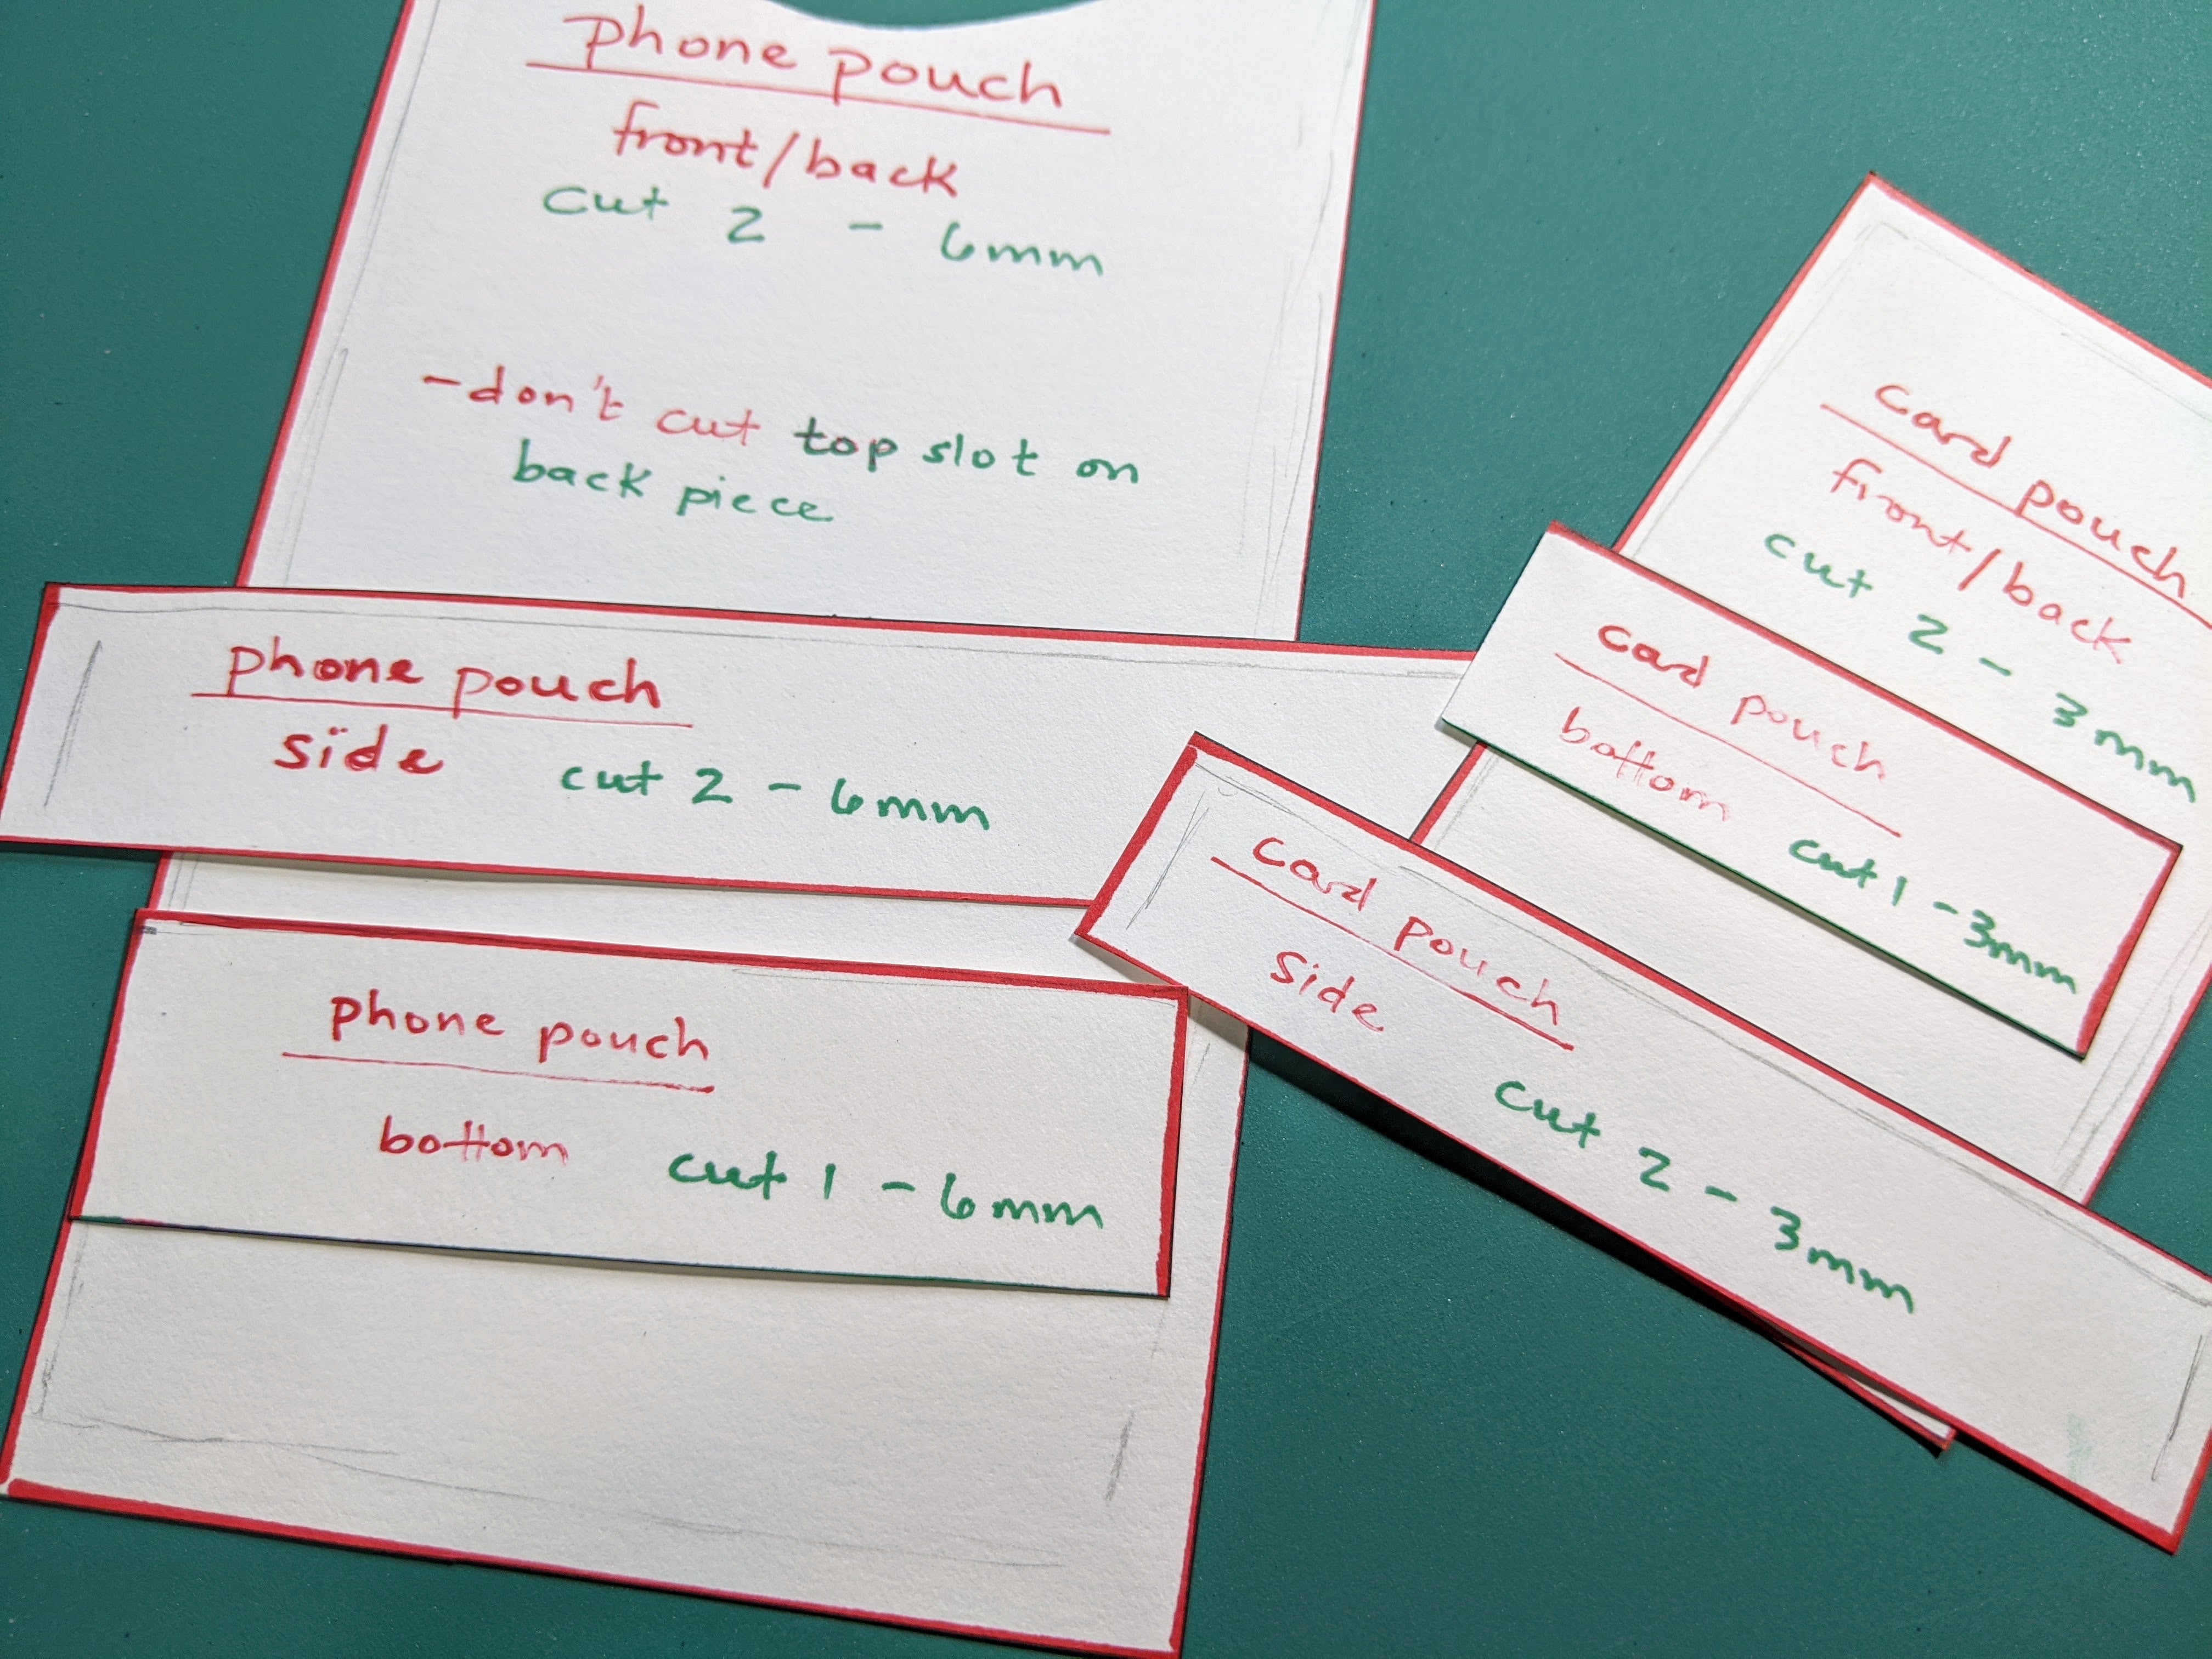 phone pouch
front/back
cut 2 - 6mm
-don't cut top slot on
back piece
phone pouch
side cut 2 - 6mm
phone pouch
bottom cut 1 - 6mm
card pouch
front/back
cut 2 - 3mm
card pouch
bottom cut 1 - 3mm
card pouch
side
cut 2 - 3mm